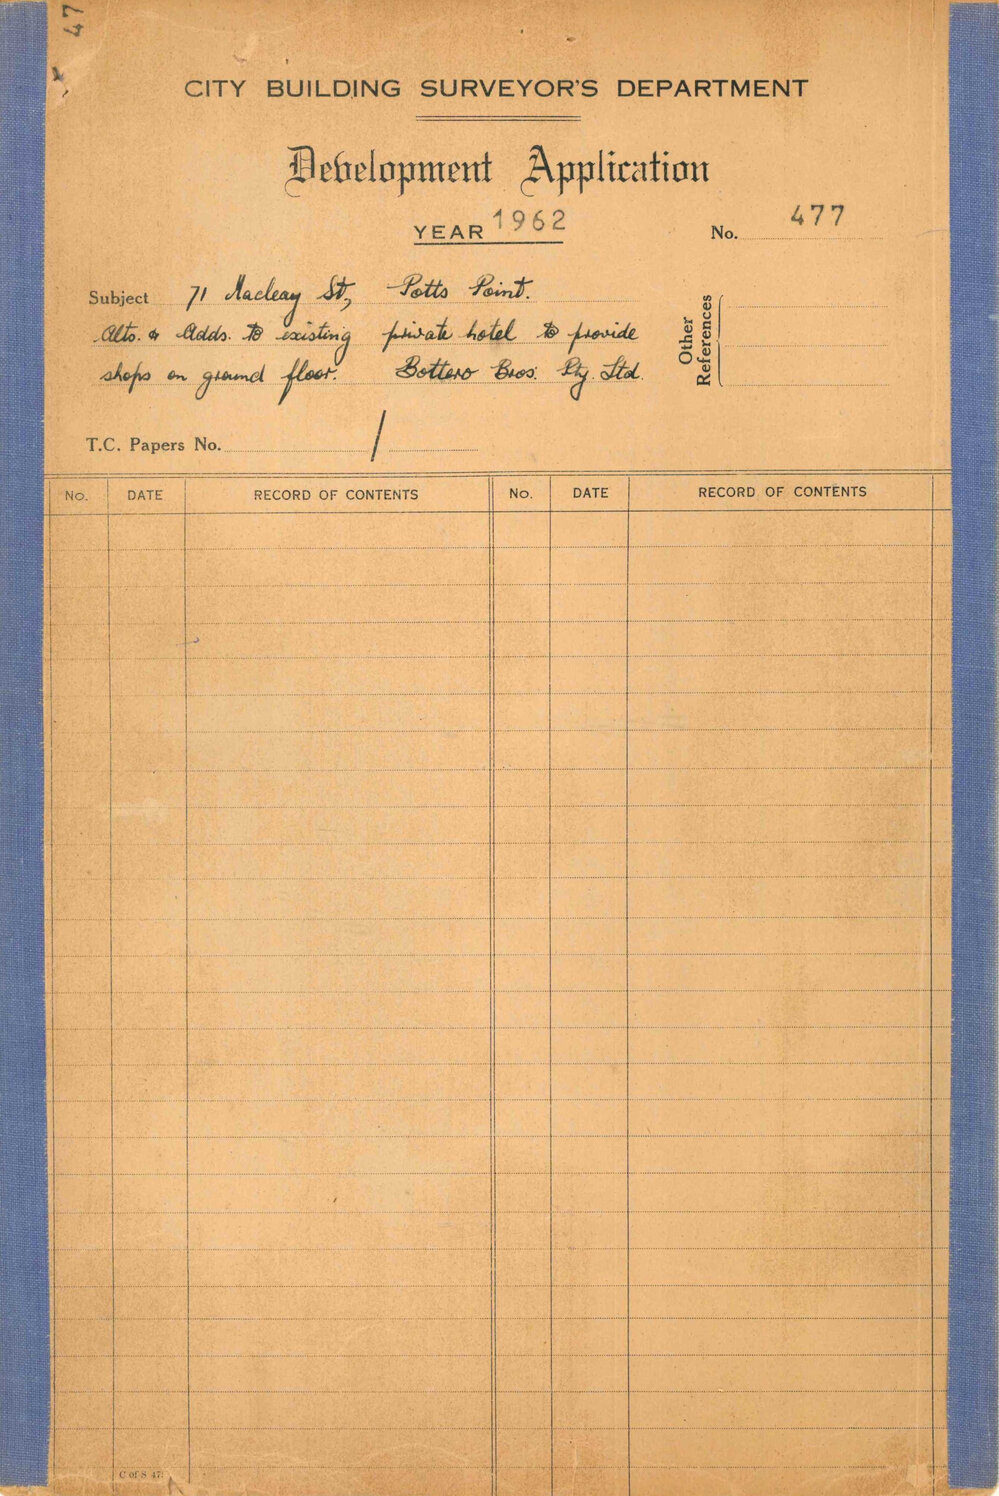 47
CITY BUILDING SURVEYOR'S DEPARTMENT
Development Application
YEAR 1962
No. 477
Subject 71 Macleay St, Potts Point.
Alts. & Adds. to existing private hotel to provide
shops on ground floor. Bottero Bros. Pty. Ltd.
Other
References
T.C. Papers No. /
No. DATE RECORD OF CONTENTS No. DATE RECORD OF CONTENTS
C of S 47